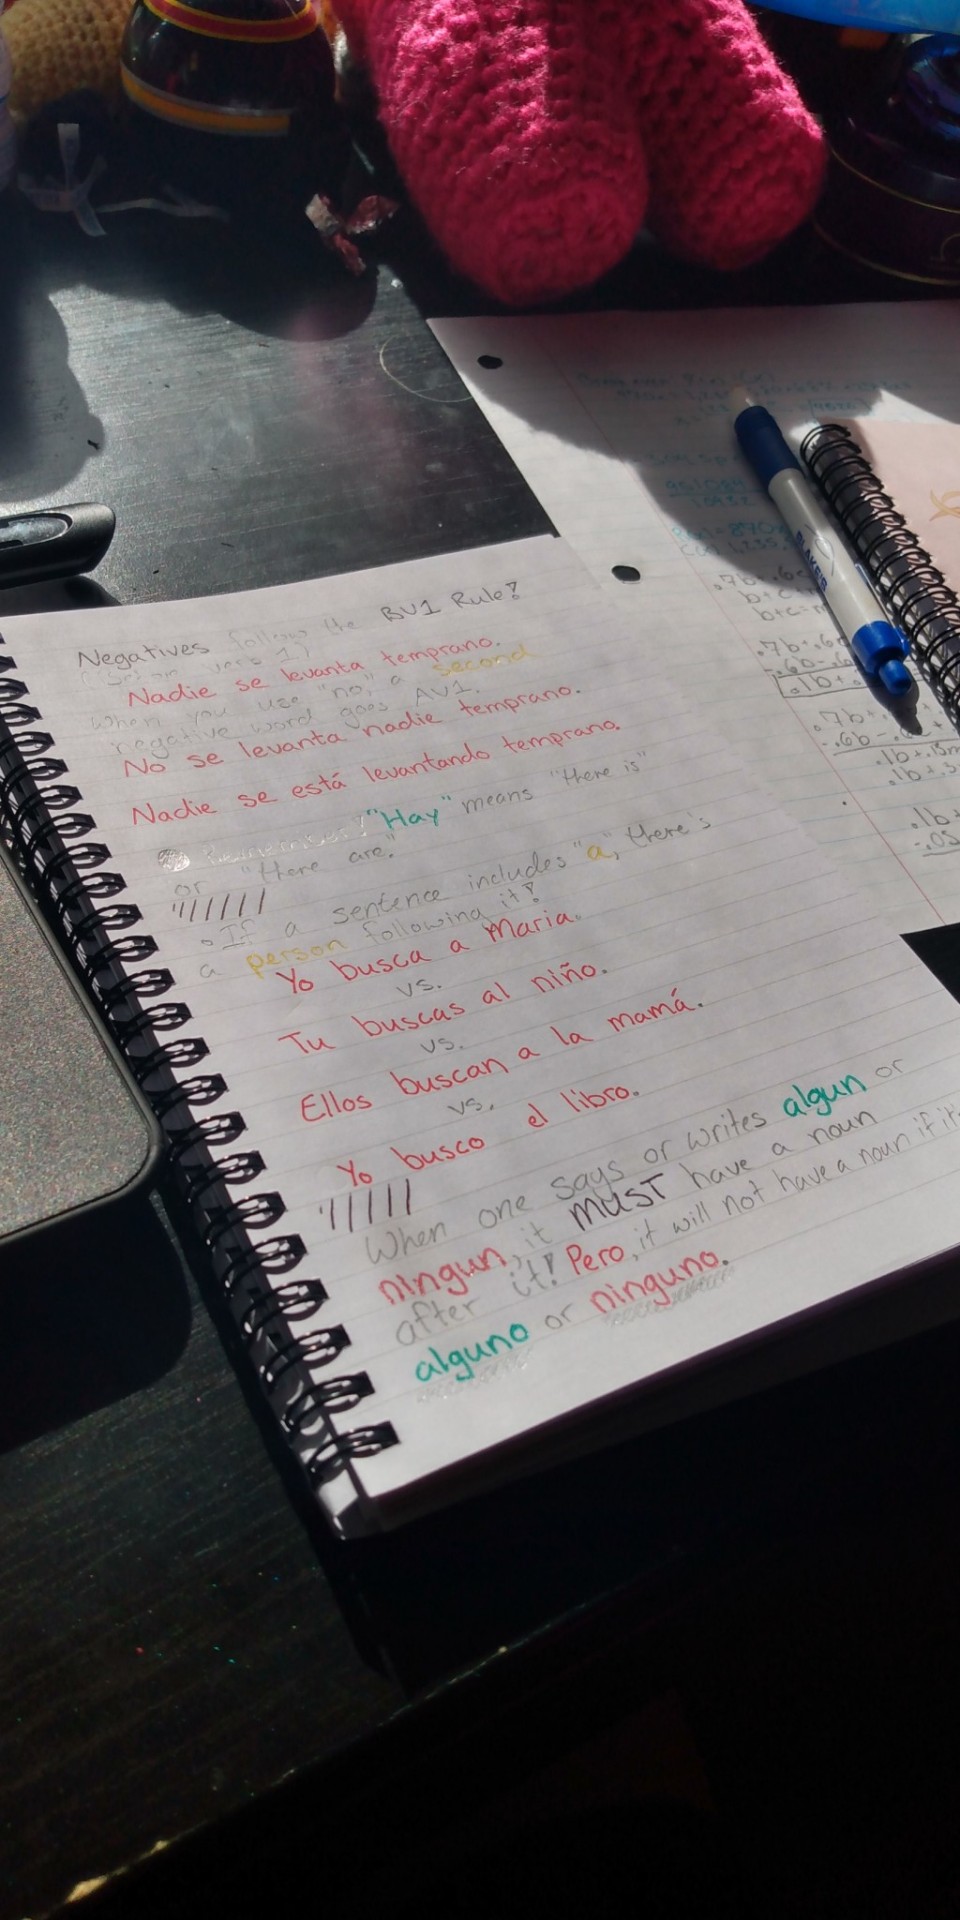 Negatives follow the BV1 Rule!
(before verb 1)
Nadie se levanta temprano.
When you use "no," a second
negative word goes AV1.
No se levanta nadie temprano.
Nadie se está levantando temprano.
Remember! "Hay" means "there is"
or "there are."
If a sentence includes "a," there's
a person following it!
Yo busca a Maria.
vs.
Tu buscas al niño.
vs.
Ellos buscan a la mamá.
vs.
Yo busco el libro.
When one says or writes algun or
ningun, it MUST have a noun
after it! Pero, it will not have a noun if it's
alguno or ninguno.
.7b+.6c
b+c
b+c=m
.7b+.6c
-.6b-.6
.1b+.
.7b+
-.6b-.6c+
.1b+.3m
.1b+.3
.1b+
-.05